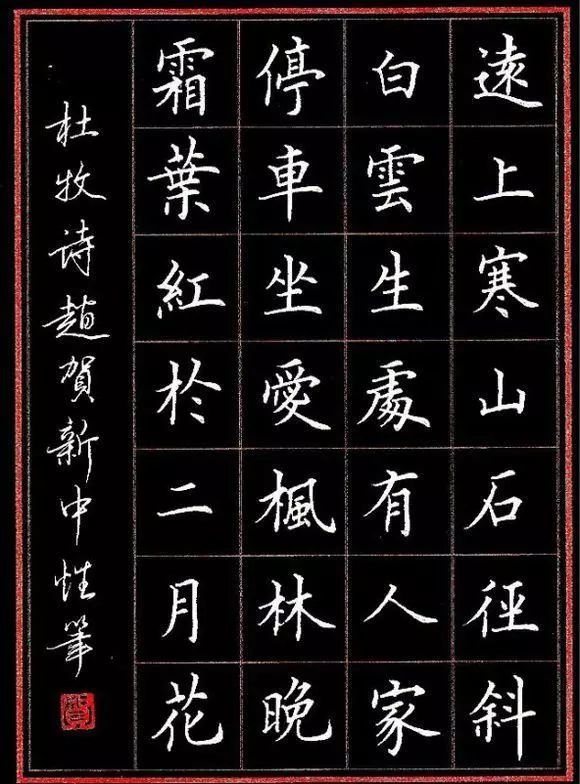 遠上寒山石徑斜
白雲生處有人家
停車坐愛楓林晚
霜葉紅於二月花
杜牧诗趙賀新中性筆
賀